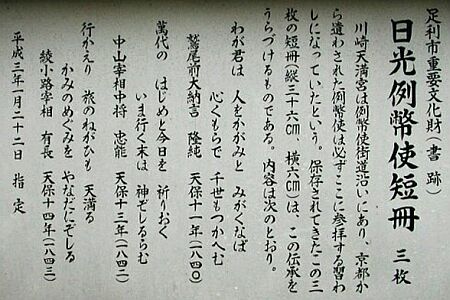 足利市重要文化財(書跡)
日光例幣使短冊 三枚
川崎天満宮は例幣使街道沿いにあり、京都か
ら遣わされた例幣使は必ずここに参拝する習わ
しになっていたという。保存されてきたこの三
枚の短冊(縦三十六cm、横六cm)は、この伝承を
うらづけるものである。内容は次のとおり。
わが君は 人をかがみと みがくなば
心くもらで 千世もつかへむ
鷲尾前大納言 隆純 天保十一年(一八四〇)
萬代の はじめと今日を 祈りおく
いま行く末は 神ぞしるらむ
中山宰相中将 忠能 天保十三年(一八四二)
行かえり 旅のねがひも 天満る
かみのめぐみを やなだにぞしる
綾小路宰相 有長 天保十四年(一八四三)
平成三年一月二十二日 指定